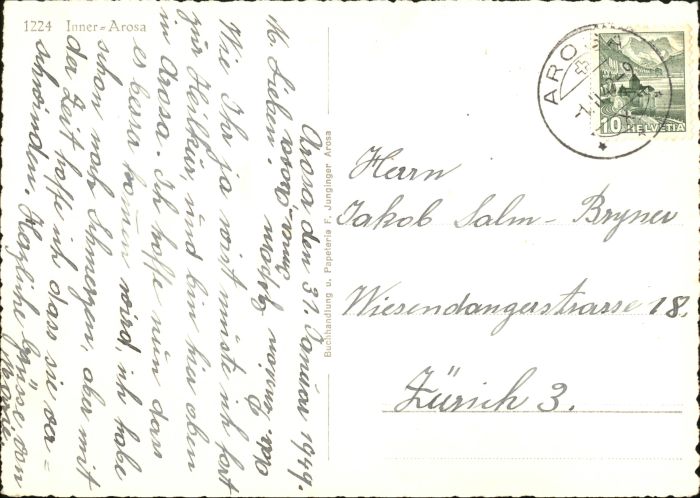 1224 Inner=Arosa
Arosa, den 31. Januar 1949.
M. Lieben!
Wie Ihr ja wisst müste ich fort
zur Heilkur, und bin hier oben
in Arosa. Ich hoffe nun dass
es besser kommen wird, ich habe
schon noch Schmerzen, aber mit
der Zeit hoffe ich dass sie ver=
schwinden. Herzliche Grüsse von
Buchhandlung u. Papeterie F. Junginger Arosa
AROSA
10 HELVETIA
Herrn
Jakob Salm-Bryner
Wiesendangerstrasse 18.
Zürich 3.